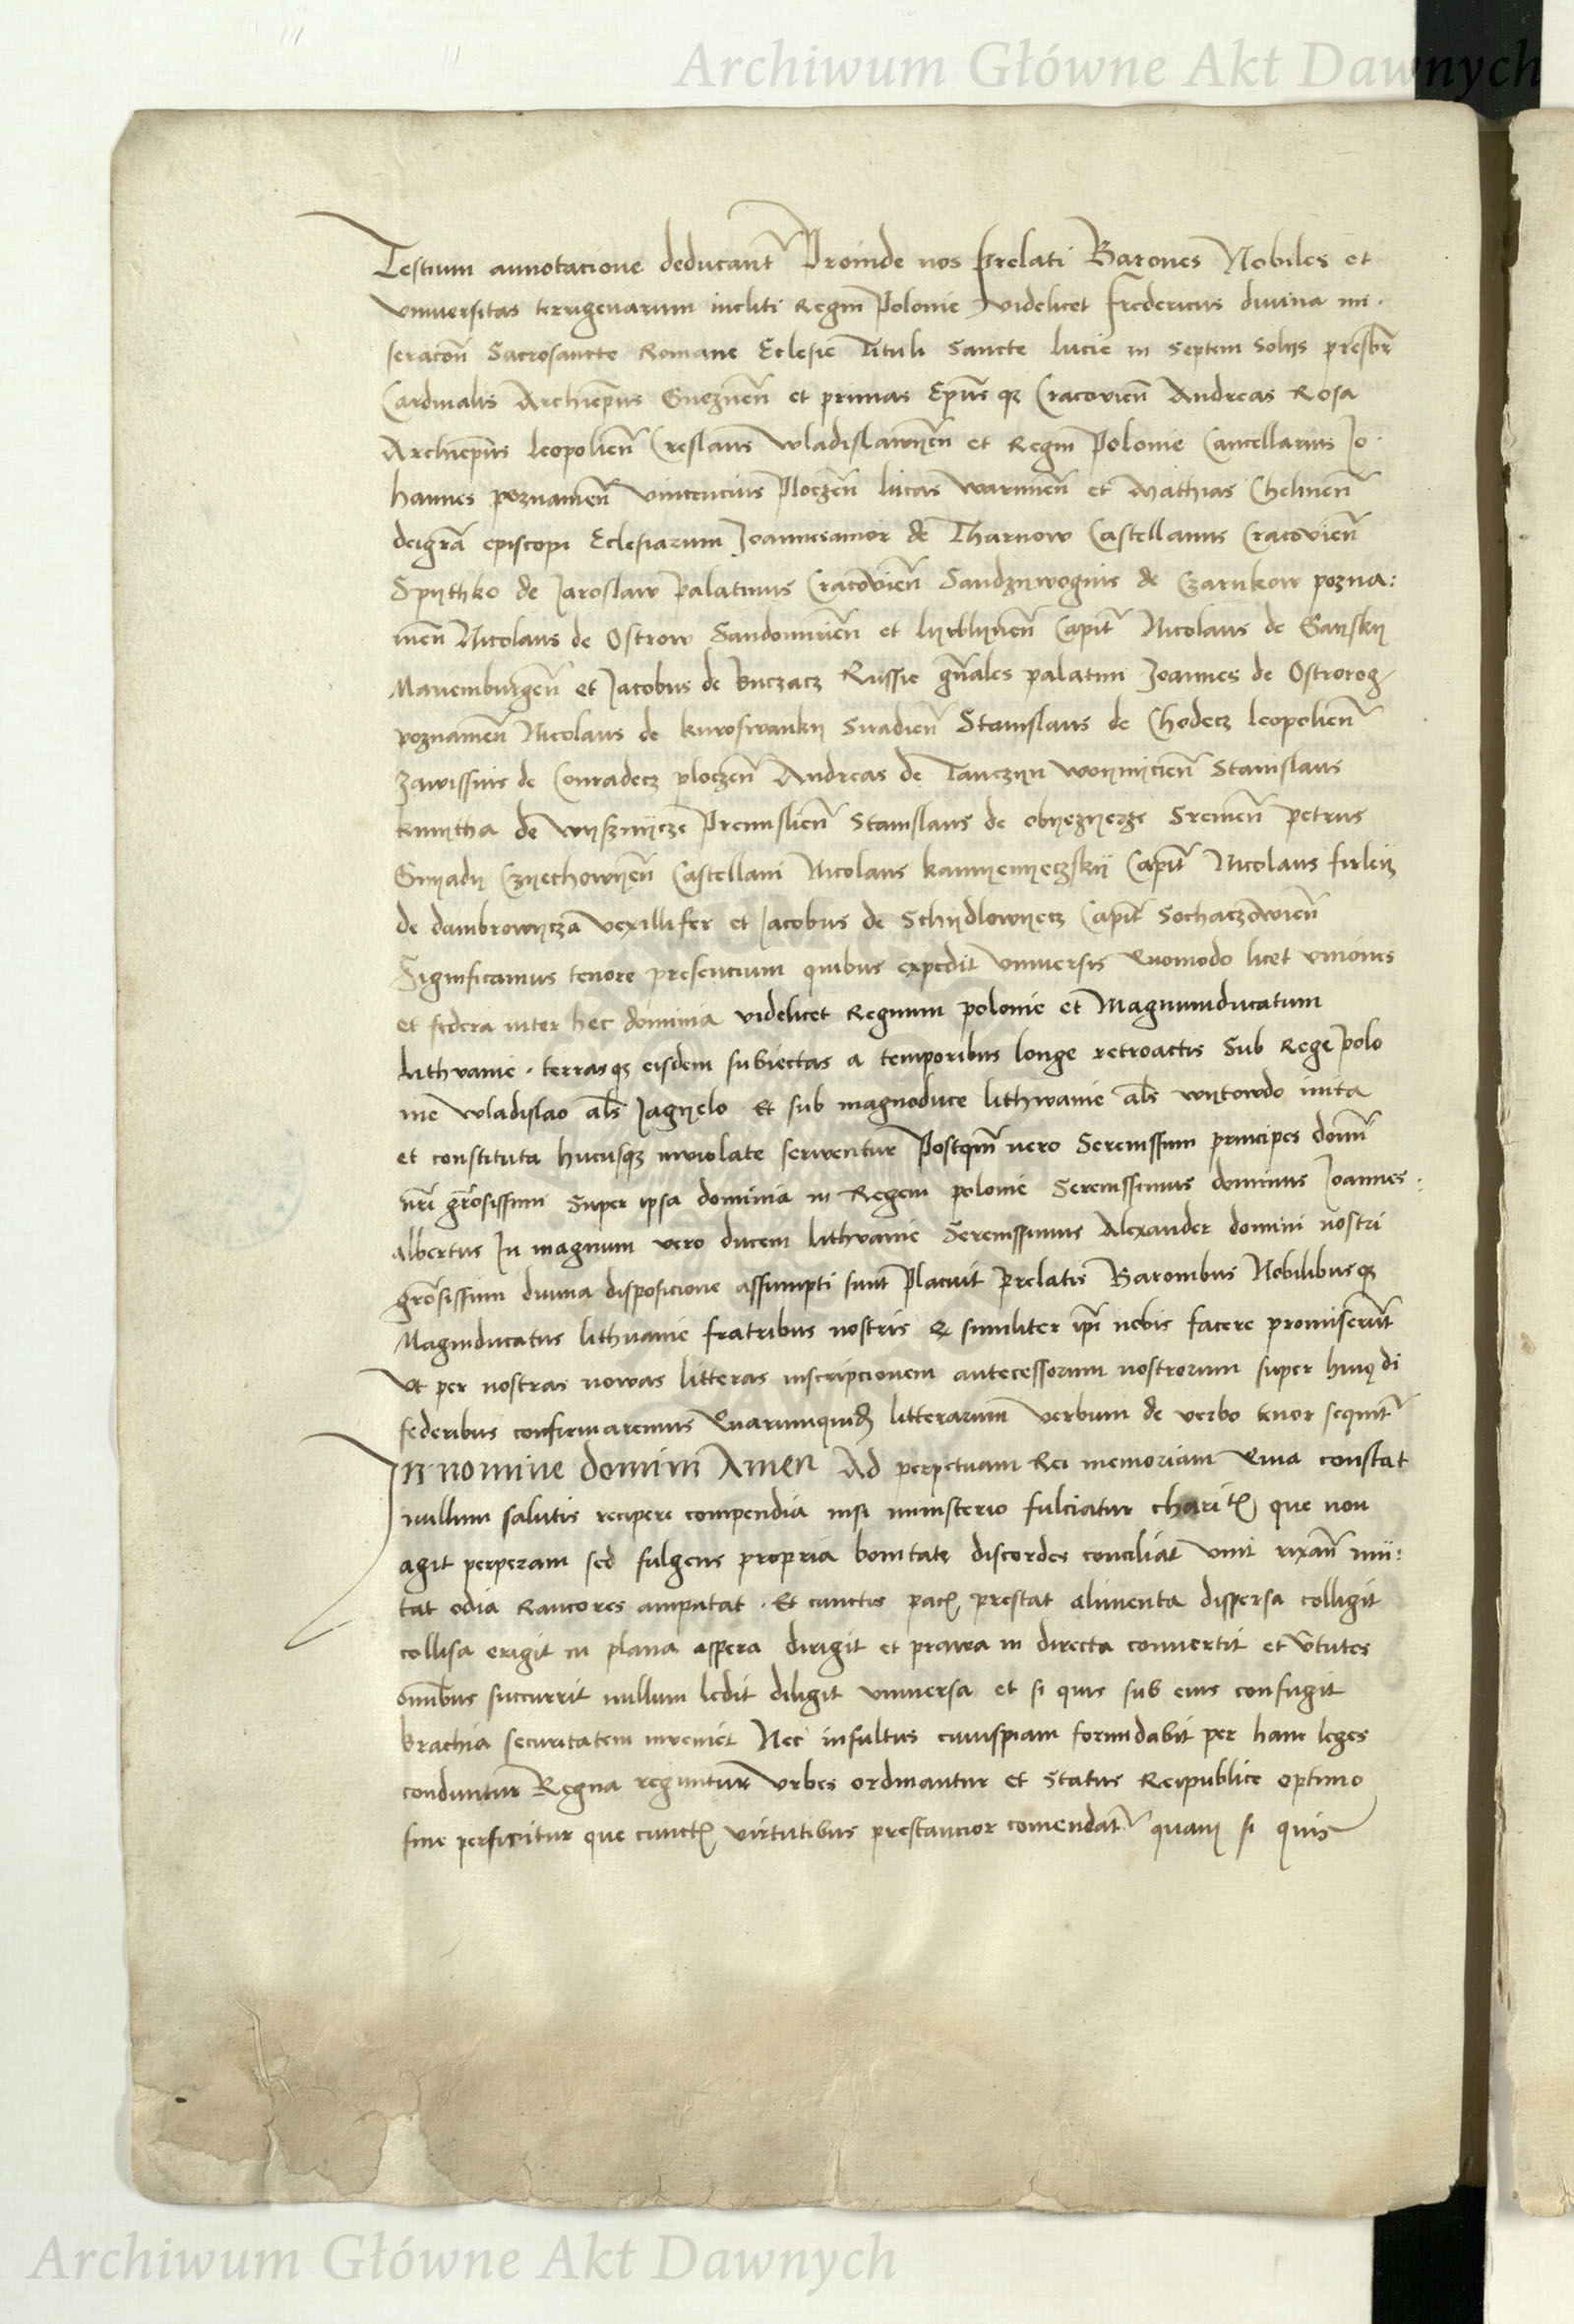 Archiwum Główne Akt Dawnych
Testium annotacione deducant͛ Proinde nos prelati Barones Nobiles et
Vniuersitas terrigenarum incliti Regni Polonie Videlicet fredericus diuina mi·
seracōn Sacrosancte Romane Eclesie Tituli Sancte lucie in Septem Solijs presbr̄
Cardinalis Archiepūs Gneznen̄ et primas Epūs qȝ Cracovien̄ Andreas Rosa
Archiepūs leopolien̄ Creslaus wladislawien̄ et Regni Polonie Cancellarius Jo·
hannes poznanien̄ vincencius Ploczen̄ lucas warmien̄ et Mathias Chelmen̄
deigrā episcopi Eclesiarum Joannesamor de Tharnow Castellanus Cracovien̄
Spythko de Jaroslaw Palatinus Cracovien̄ Sandzywogius de Czarnkow pozna:
nien̄ Nicolaus de Ostrow Sandomirien̄ et lwblynen̄ Capit͛ Nicolaus de Gaysky
Mariemburgen̄ et Jacobus de buczacz Russie gn̄ales palatini Joannes de Ostrorog
poznanien̄ Nicolaus de kuroswanky Siradien̄ Stanislaus de Chodecz leopolien̄
Zawissius de Conradecz ploczen̄ Andreas de Tanczyn woynicien̄ Stanislaus
kmytha de wysznycze Premislien̄ Stanislaus de obyezyerze Sremen̄ petrus
Gnyady Czyechowyen̄ Castellani Nicolaus kamyenyeczsky Capit͛ Nicolaus firleij
de dambrowycza vexillifer et Jacobus de Schydlowyecz Capit͛ Sochaczewien̄
Significamus tenore presencium quibus expedit Vniuersis Quomodo licet vniones
et federa inter hec dominia videlicet Regnum polonie et Magnumducatum
lithvanie · terrasqȝ eisdem subiectas a temporibus longe retroactis Sub Rege Polo
nie wladislao als̄ Jagyelo Et sub magnoduce lithwanie als̄ wytowdo inita
et constituta hucusqȝ inviolate serventur Postqm̄ vero Serenissimi principes domī
nrī gr̄osissimi Super ipsa dominia in Regem polonie Serenissimus dominus Joannes·
albertus In magnum vero ducem lithvanie Serenissimus Alexander domini nostri
gr̄osissimi diuina disposicione assumpti sunt Placuit Prelatis Baronibus Nobilibusqȝ
Magniducatus lithuanie fratribus nostris & similiter ip̄i nobis facere promiserūt
Vt per nostras nowas litteras inscripcionem antecessorum nostrorum super huiꝗdi
federibus confirmaremus Quarumquidȝ litterarum verbum de verbo tenor sequit͛
In nomine domini Amen Ad perpetuam Rei memoriam Quia constat
nullum salutis recipere compendia nisi ministerio fulciatur charitꝭ que non
agit perperam sed fulgens propria bonitate discordes conciliat vnit rixan̄ mū:
tat odia Rancores amputat · Et cunctis pacꝭ prestat alimenta dispersa colligit
collisa erigit in plana aspera dirigit et prawa in directa convertit et v̄tutes
omībus succurrit nullum ledit diligit vniuersa et si quis sub eius confugit
brachia securitatem inveniet Nec insultus cuiuspiam formidabit per hanc leges
conduntur Regna reguntur Vrbes ordinantur et Status Reipublice optimo
fine perficitur que cunctꝭ virtutibus prestancior comendat͛ quam si quis
Archiwum Główne Akt Dawnych